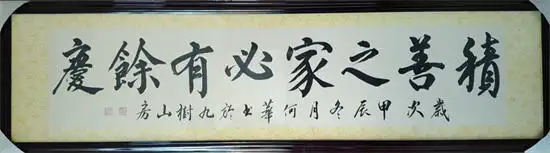 積善之家必有餘慶
歲次甲辰冬月何華書於九樹山房